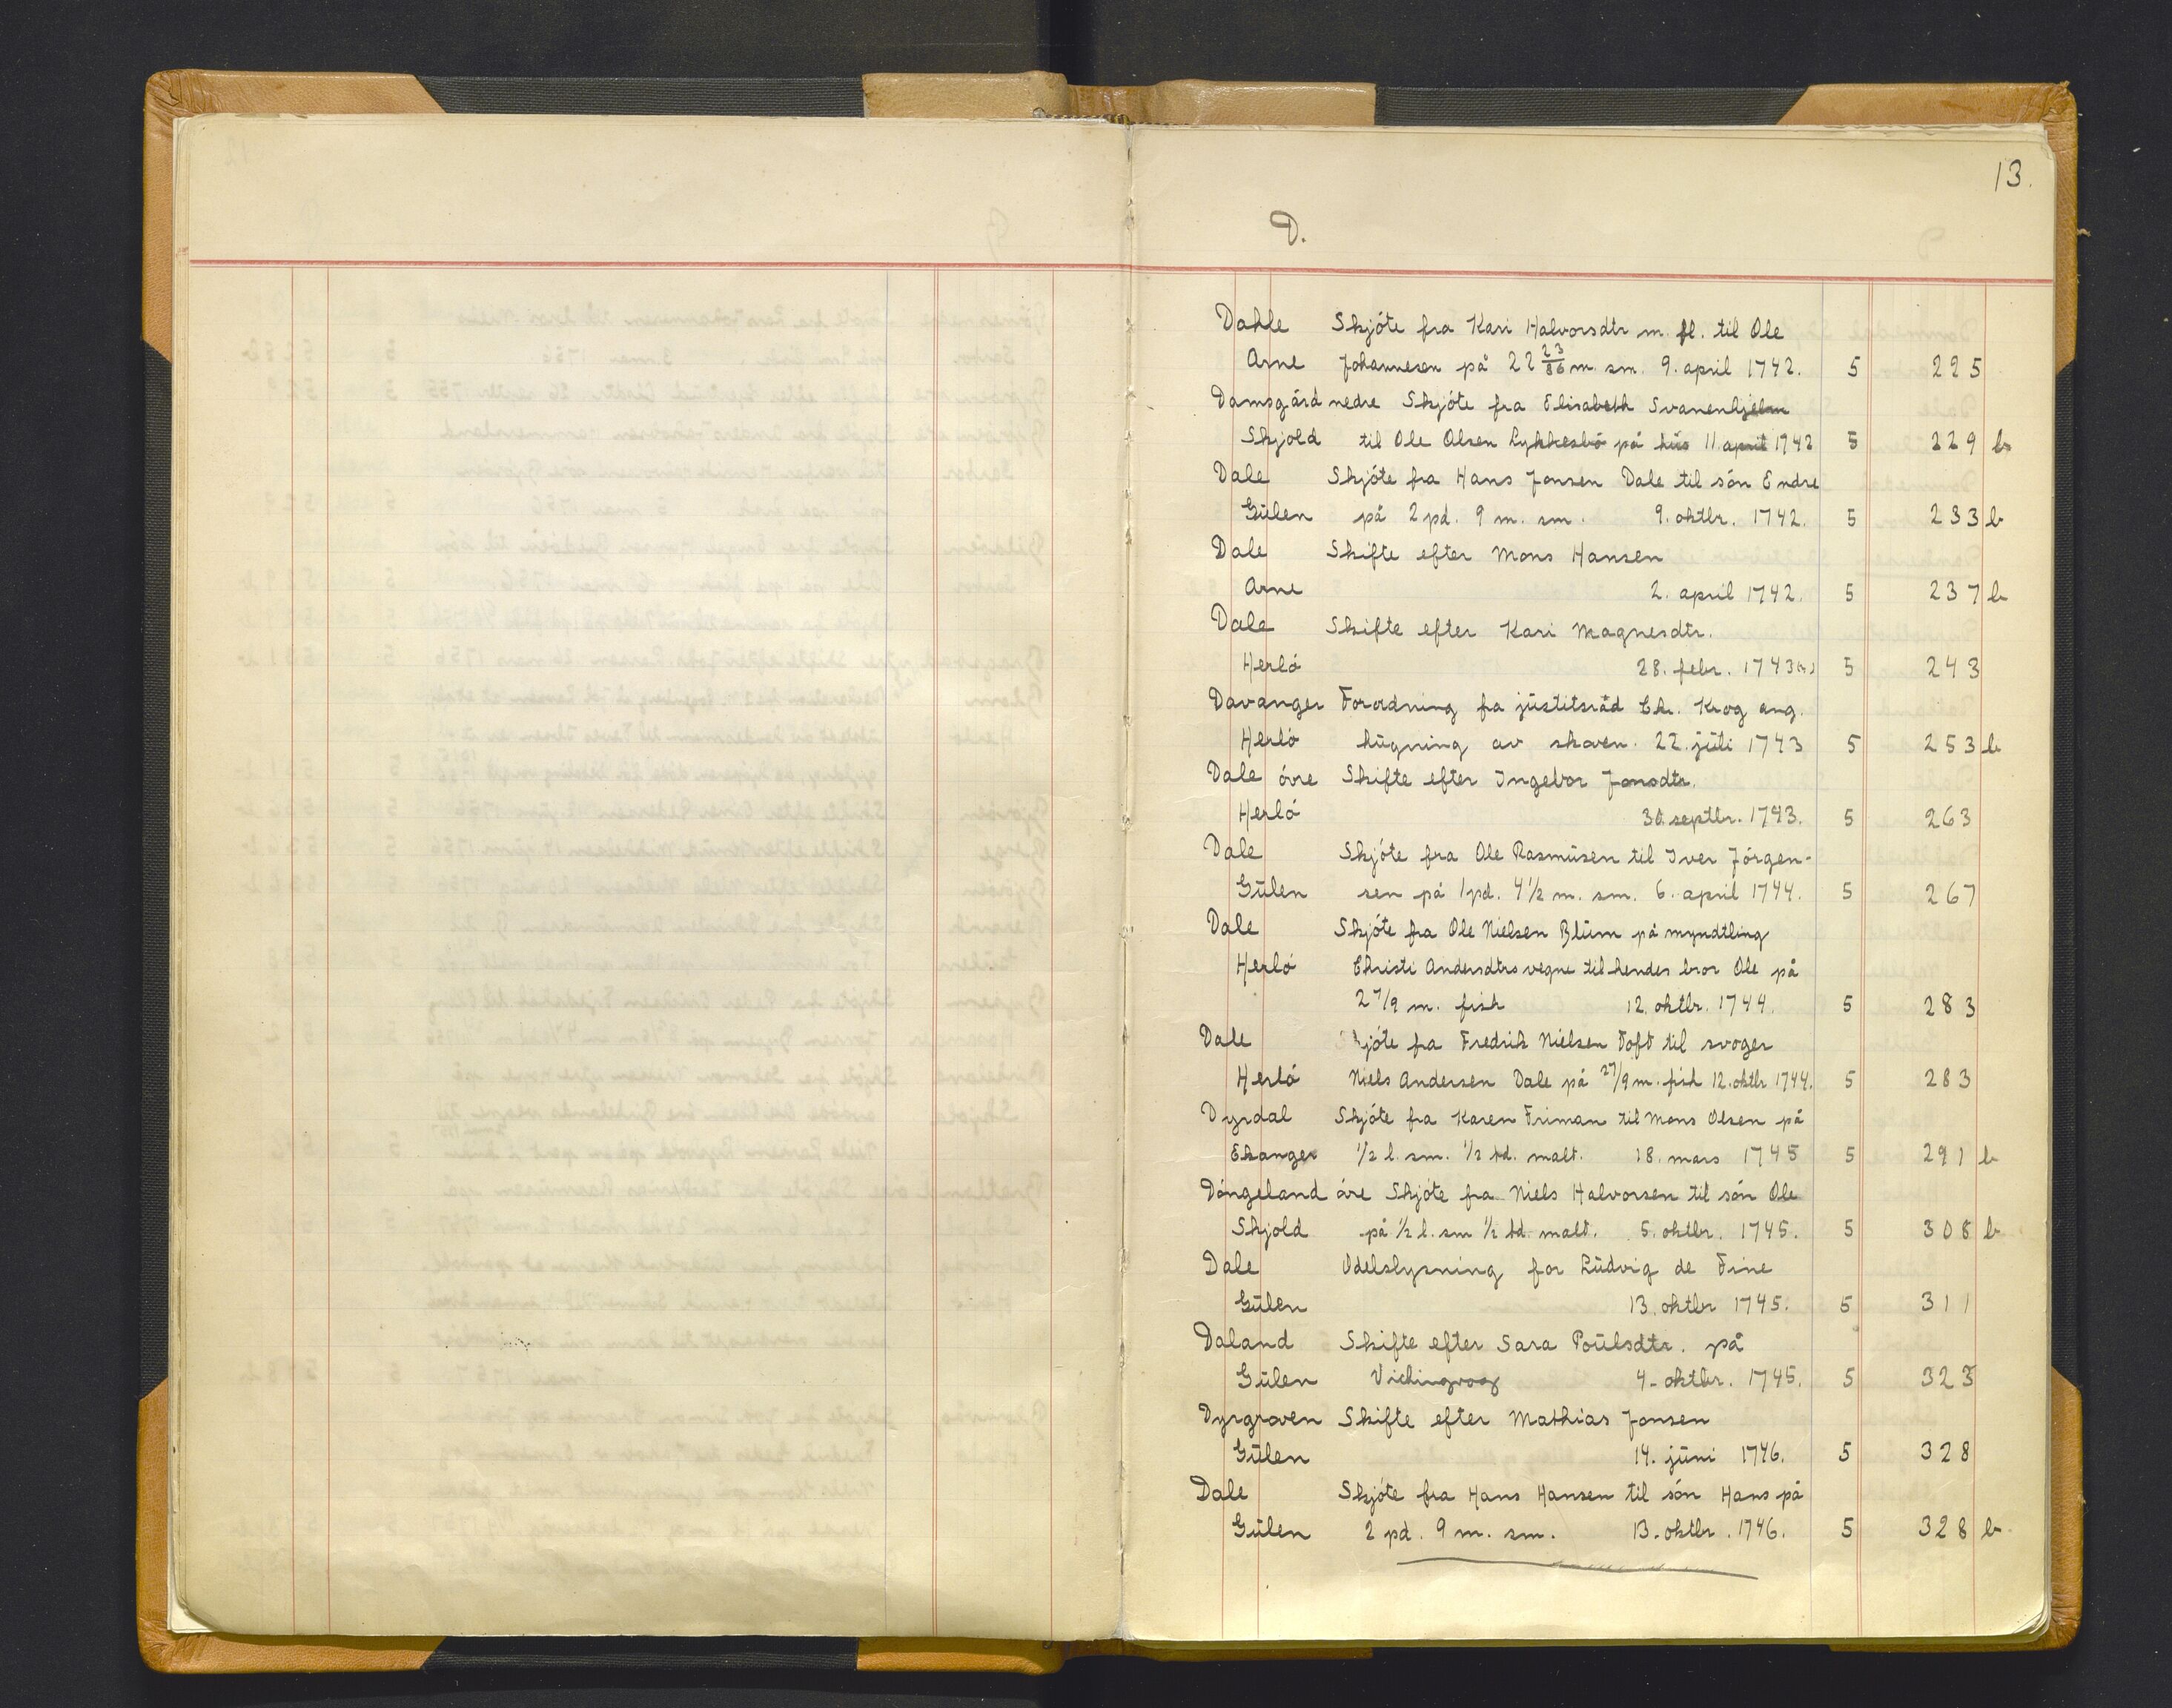 13.
D.
Dahle Skjóte fra Kari Halvorsdtr m. fl. til Ole
Arne Johannesen på 22 23/86 m. sm. 9. april 1742. 5 225
Damsgård nedre Skjóte fra Elisabeth Svanenhjelm
Skjold til Ole Olsen Lykkesbó på hús 11 april 1742 5 229 b
Dale Skjóte fra Hans Jonsen Dale til són Endre
Gülen på 2 pd. 9 m. sm. 9. oktbr. 1742. 5 233 b
Dale Skifte efter Mons Hansen
Arne 2. april 1742. 5 237 b
Dale Skifte efter Kari Magnesdtr.
Herló 28. febr. 1743 5 243
Davanger Forordning fra jüstitsråd Chr. Krog ang.
Herló hügning av skoven. 22. jüli 1743 5 253 b
Dale óvre Skifte efter Ingebor Jonsdtr.
Herló 30. septbr. 1743. 5 263
Dale Skjóte fra Ole Rasmüsen til Iver Jórgen-
Gülen sen på 1 pd. 4 1/2 m. sm. 6. april 1744. 5 267
Dale Skjóte fra Ole Nielsen Blüm på myndtling
Herló Christi Andersdtrs vegne til hendes bror Ole på
2 7/9 m. fisk 12. oktbr. 1744. 5 283
Dale Skjóte fra Fredrik Nielsen Toft til svoger
Herló Niels Andersen Dale på 27/9 m. fisk 12. oktbr 1744. 5 283
Dyrdal Skjóte fra Karen Friman til Mons Olsen på
Ekanger 1/2 l. sm. 1/2 td. malt. 18. mars 1745 5 291 b
Dóngeland óvre Skjóte fra Niels Halvorsen til són Ole
Skjold på 1/2 l. sm 1/2 td. malt. 5. oktbr. 1745. 5 308 b
Dale Odelslysning for Lüdvig de Fine
Gülen 13. oktbr 1745. 5 311
Daland Skifte efter Sara Poülsdtr. på
Gülen Vichingvoog 4. oktbr. 1745. 5 323
Dyrgraven Skifte efter Mathias Jonsen
Gülen 14. jüni 1746. 5 328
Dale Skjóte fra Hans Hansen til són Hans på
Gülen 2 pd. 9 m. sm. 13. oktbr. 1746. 5 328 b